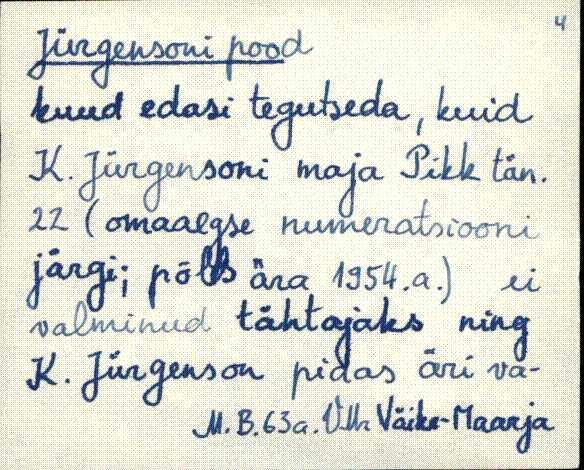 4
Jürgensoni pood
kuud edasi tegutseda, kuid
K. Jürgensoni maja Pikk tän.
22 (omaaegse numeratsiooni
järgi; põles ära 1954.a.) ei
valminud tähtajaks ning
K. Jürgenson pidas äri va-
M.B. 63a. Väike-Maarja